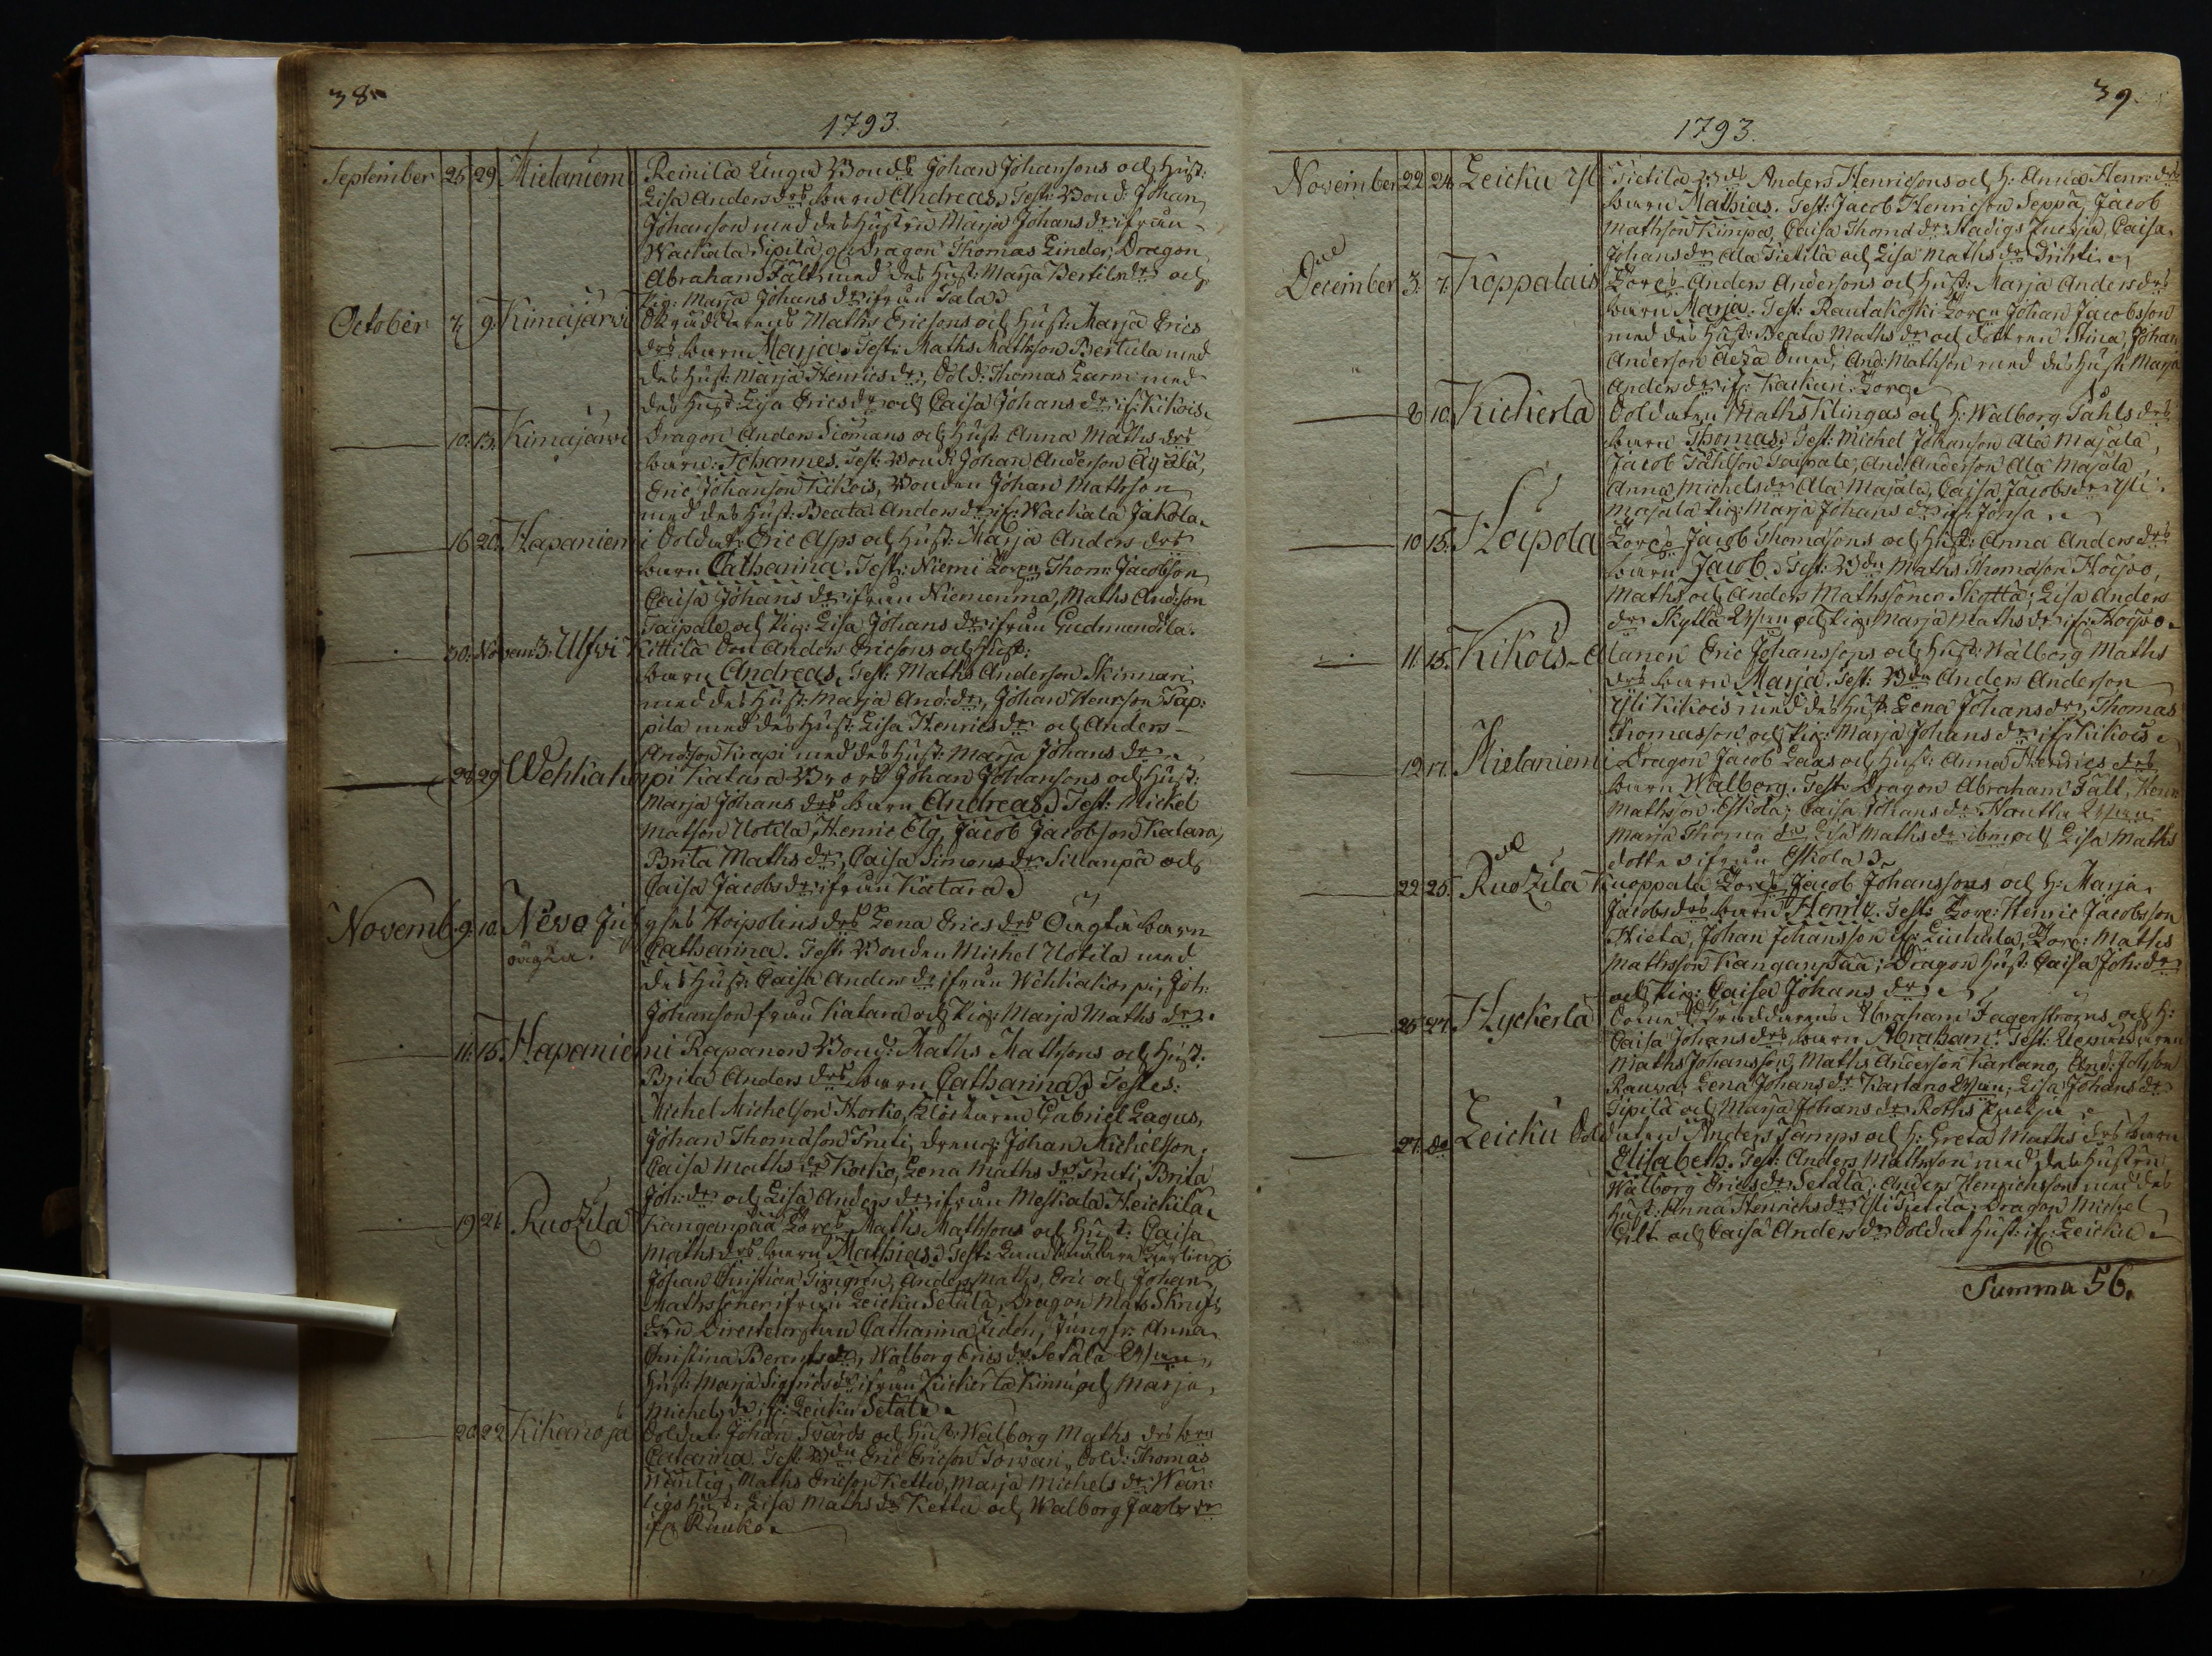 38.
1793.
September 25 29 Hietaniemi Reinilä Unga Bonds Johan Johansons och Hust:
Lisa Anders drs barn Andreas. Test: Bond: Johan
Johanson med des Hustru Marja Johans dr ifrån
Wackala Sipilä, Dragon Thomas Linder, Dragon
Abraham Fält med des Hust: Marja Bertils dr och
Pig: Marja Johans dr ifrån Tala.
October 7 9 Kimajärvi Maths Ericsons och Hust: Marja Erics
drs barn Marja. Test: Maths Mathson Bertula med
des Hust: Marja Henrics dr, Sold: Thomas Larm med
des Hust: Lisa Erics dr och Caisa Johans dr if: Kikois.
10. 13. Kimajärvi Dragon Anders Siömans och Hust: Anna Maths drs
barn: Johannes. Test: Bond: Johan Anderson Äijälä,
Eric Johanson Kikois, Bonden Johan Mathson
med des Hust: Beata Anders dr if: Wackala Jakola.
16. 20. Hapaniemi Soldat: Eric Asps och Hust: Marja Anders drs
barn Catharina. Test: Niemi Thom: Jacobson
Caisa Johans dr ifrån Niemenmaa, Maths Andson
Taipale och Pig: Lisa Johans dr ifrån Gudmundila.
30. Novem 3. Ulfvi Kittilä Son Anders Ericsons och Hust:
barn Andreas. Test: Maths Anderson Skinnari
med des Hust: Marja And: dr, Johan Henrson Pap:
pila med des Hust: Lisa Henrics dr och Anders
Andson Krapi med des Hust: Marja Johans dr
28 29 Wehkakorpi Katara Johan Johansons och Hust:
Marja Johans drs barn Andreas. Test: Mickel
Matson Uotila, Henric Elg, Jacob Jacobson Katara,
Brita Maths dr, Caisa Simons dr Sillanpä och
Caisa Jacobs dr ifrån Katara.
Novemb. 9. 10. Nevo Lena Erics drs Oäkta barn
oäkta. Catharina. Test: Bonden Michel Uotila med
des Hust: Caisa Anders dr ifrån Wehkakorpi, Joh:
Johanson från Katara och Pig: Marja Maths dr.
11. 15. Hapaniemi Rapanen Bond: Maths Mathsons och Hust:
Brita Anders drs barn Catharina. Testes:
Michel Michelson Horko, Klockaren Gabriel Lagus,
Johan Thomason Pruti, dreng: Johan Michelson,
Caisa Maths dr Korko, Lena Maths dr Pruti, Brita
Joh: dr och Lisa Anders dr ifrån Meskala Heickilä.
19 21. Ruozila Kanganpää Maths Mathsons och Hust: Caisa
Maths drs barn Mathias. Test:
Johan Christian Timgren, Anders Maths, Eric och Johan
Mathssöner ifrån Leicku Setälä, Dragon Mats Skruf,
Catharina Ziden, Jungfr: Anna
Christina Berents dr, Walborg Erics dr Setälä
Hust: Marja Sigfrids dr ifrån Kickerlä Kinni och Marja
Michels dr if: Leicku Setälä.
20 22 Kikanoja Soldat: Johan Svärds och Hust: Walborg Maths drs barn
Catarina. Test: Bdn Eric Ericson Torvari, Sold: Thomas
Wänlig, Maths Ericson Kettu, Marja Michels dr Wän:
ligs Hust: Lisa Maths dr Kettu och Walborg Jacobs dr
if: Ruuko.
39.
1793.
November 22 24. Leicku Tietilä Anders Henricsons och H: Anna Henr: drs
barn Mathias. Test: Jacob Henricson Seppä, Jacob
Mathson Kimpa, Caisa Thoma dr Stadigs Enckja, Caisa
Johans dr Ala Tietilä och Lisa Maths dr
December 3. 7. Koppalais Anders Andersons och Hust: Marja Anders drs
barn Marja. Test: Rautakoski Johan Jacobsson
med des Hust: Beata Maths dr och dottren Stina, Johan
Anderson And: Mathson med des Hust: Marja
Anders dr if:
8 10. Kickerlä Soldaten Maths Klingas och H: Walborg Påhls drs
barn Thomas. Test: Michel Johanson Ala Majala,
Jacob Påhlson Taipale, And: Anderson Ala Majala,
Anna Michels dr Ala Majala, Caisa Jacobs dr Ysti
Majala Pig: Marja Johans dr if: Jonsa.
10 15. Hoipola Jacob Thomasons och Hust: Anna Anders drs
barn Jacob. Test: Bdn Maths Thomason Hoipo,
Maths och Anders Mathssöner Skyttä; Lisa Anders
dr Skyttä och Pig: Marja Maths dr if: Hoipo.
11. 15. Kikois Alanen Eric Johanssons och Hust: Walborg Maths
drs barn Marja. Test: Bdn Anders Anderson
Ysti Kikois med des Hust: Lena Johans dr, Thomas
Thomasson och Pig: Marja Johans dr if: Kikois.
12 17. Hietaniemi Dragon Jacob Laas och Hust: Anna Henrics drs
barn Walborg. Test: Dragon Abraham Fält, Henr:
Mathson Eskola; Caisa Johans dr
Marja Thoma dr Lisa Maths dr ibm och Lisa Maths
dotter ifrån Eskola.
22 25. Ruozila Kuoppala Jacob Johanssons och H: Marja
Jacobs drs barn Henric. Test: Henric Jacobsson
Hieta, Johan Johansson if: Maths
Mathsson Kanganpää; Dragon Hust: Caisa Joh: dr
och Pig: Caisa Johans dr.
25 27. Hyckerlä Abraham Fagerströms och H:
Caisa Johans drs barn Abraham. Test:
Maths Johansson, Maths Anderson Karlano, And: Johson
Lena Johans dr Karlano Lisa Johans dr
Sipilä och Marja Johans dr Roths Enckja.
27. do Leicku Soldaten Anders Pamps och H: Greta Maths drs barn
Elisabeth. Test: Anders Mathsson med des Hustru
Walborg Erics dr Setälä; Anders Henrichsson med des
Hust: Anna Henrichs dr Ysti Tietilä; Dragon Michel
och Caisa Anders dr Soldat Hust: if: Leicku.
Summa 56.